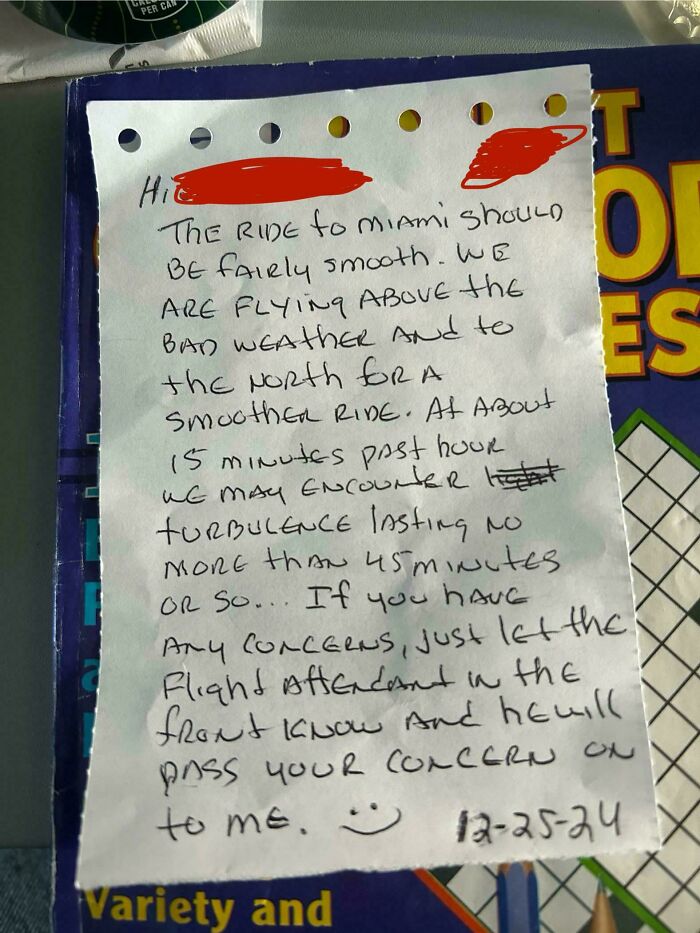 PER CAN
Hi
THE RIDE to MIAMI SHOULD
BE FAIRLY SMOOTH. WE
ARE FLYING ABOVE the
BAD WEATHER AND to
the NORTH FOR A
SMOOTHER RIDE. At ABOUT
15 MINUTES PAST HOUR
WE MAY ENCOUNTER
TURBULENCE lASTING NO
MORE than 45 MINUTES
OR SO... If you HAVE
ANY CONCERNS, JUST let the
Flight AttENDANT IN the
FRONT KNOW AND HE will
PASS YOUR CONCERN ON
to ME.
12-25-24
T
ES
Variety and